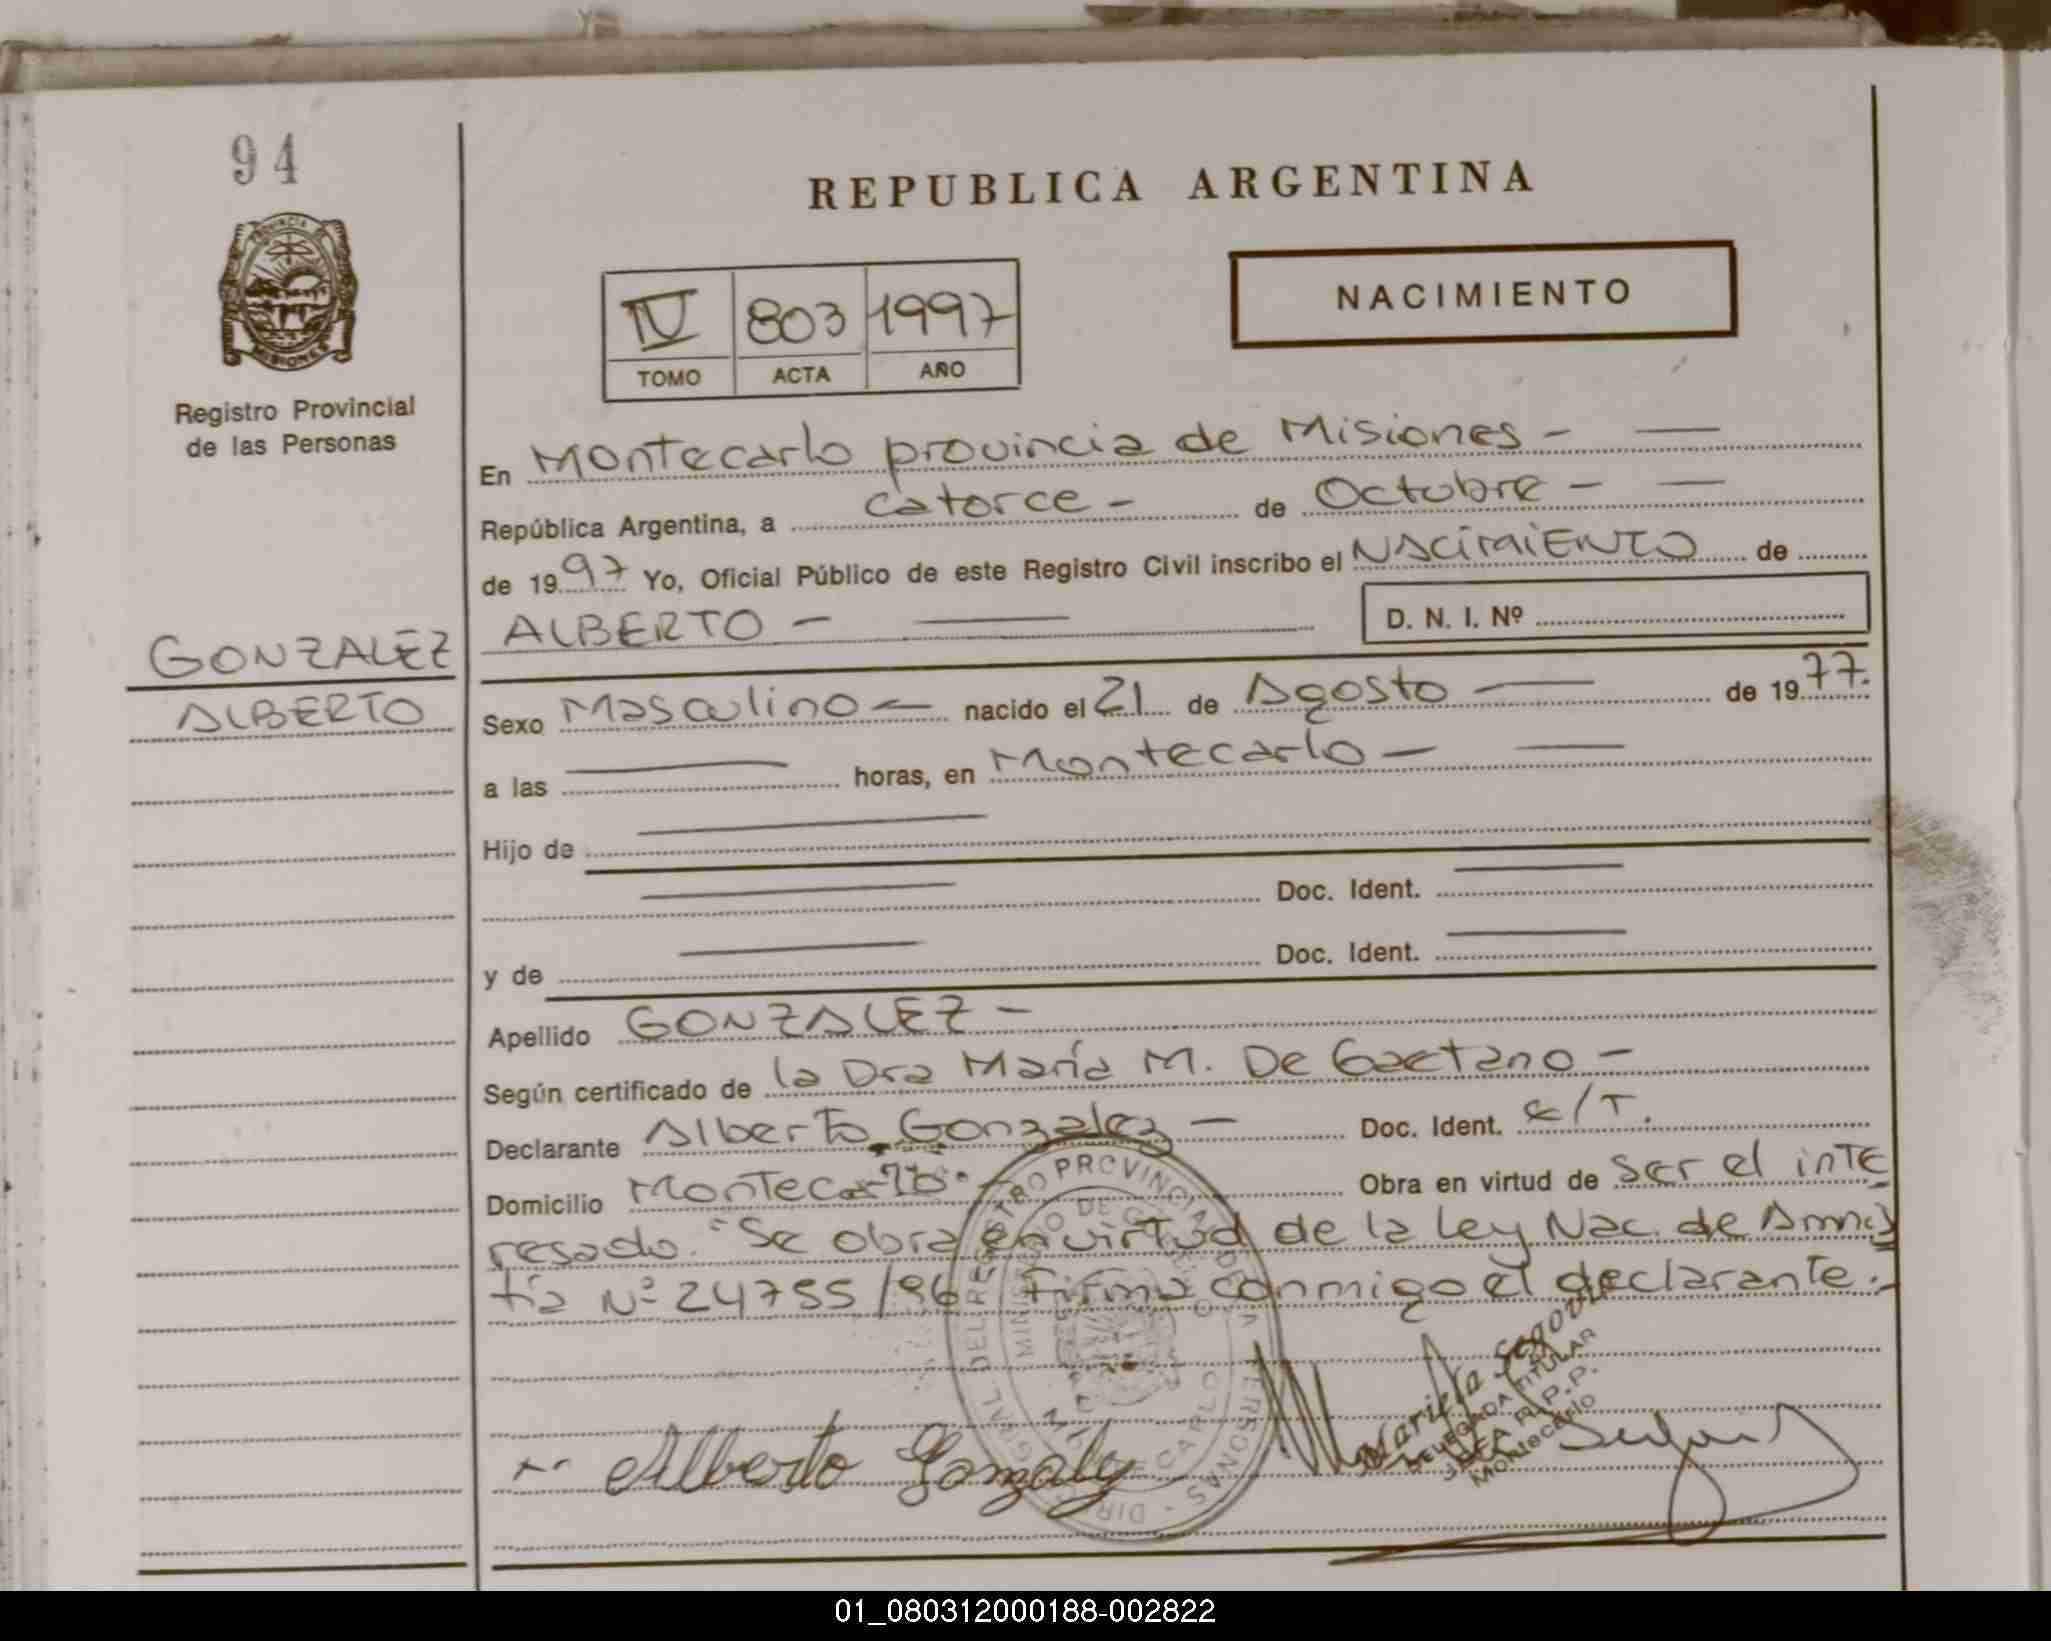 94
REPUBLICA ARGENTINA
NACIMIENTO
IV 803 1997
TOMO ACTA AÑO
PROVINCIA DE
MISIONES
Registro Provincial
de las Personas
En Montecarlo provincia de Misiones -
República Argentina, a catorce - de Octubre -
de 1997 Yo, Oficial Público de este Registro Civil inscribo el NACIMIENTO de
ALBERTO - D. N. I. Nº
GONZALEZ
ALBERTO
Sexo Masculino - nacido el 21 de Agosto - de 1977.
a las horas, en Montecarlo -
Hijo de
Doc. Ident.
y de Doc. Ident.
Apellido GONZALEZ -
Según certificado de la Dra María M. De Gaetano -
Declarante Alberto Gonzalez - Doc. Ident. e/T.
Domicilio Montecarlo. - Obra en virtud de ser el inte
resado. "Se obra en virtud de la Ley Nac. de Amnis
tía Nº 24755/96. Firma conmigo el declarante.-
Alberto Gonzalez
Mariela Segovia
DELEGADA TITULAR
R.P.P.
Montecarlo
01_080312000188-002822